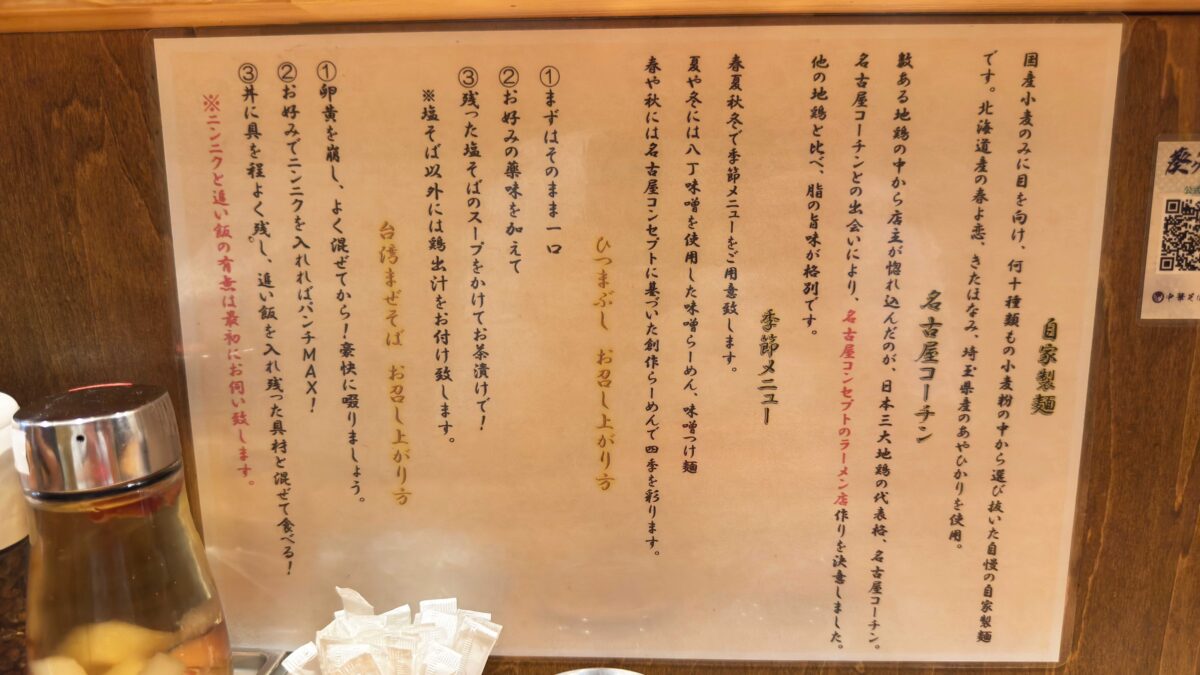 自家製麺
国産小麦のみに目を向け、何十種類もの小麦粉の中から選び抜いた自慢の自家製麺
です。北海道産の春よ恋、きたほなみ、埼玉県産のあやひかりを使用。
名古屋コーチン
数ある地鶏の中から店主が惚れ込んだのが、日本三大地鶏の代表格、名古屋コーチン。
名古屋コーチンとの出会いにより、名古屋コンセプトのラーメン店作りを決意しました。
他の地鶏と比べ、脂の旨味が格別です。
季節メニュー
春夏秋冬で季節メニューをご用意致します。
夏や冬には八丁味噌を使用した味噌らーめん、味噌つけ麺
春や秋には名古屋コンセプトに基づいた創作らーめんで四季を彩ります。
ひつまぶし お召し上がり方
①まずはそのまま一口
②お好みの薬味を加えて
③残った塩そばのスープをかけてお茶漬けで！
※塩そば以外には鶏出汁をお付け致します。
台湾まぜそば お召し上がり方
①卵黄を崩し、よく混ぜてから！豪快に啜りましょう。
②お好みでニンニクを入れればパンチMAX！
③丼に具を程よく残し、追い飯を入れ残った具材と混ぜて食べる！
※ニンニクと追い飯の有無は最初にお伺い致します。